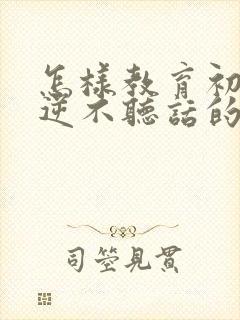 怎樣教育初
逆不聽話的
司空見貫